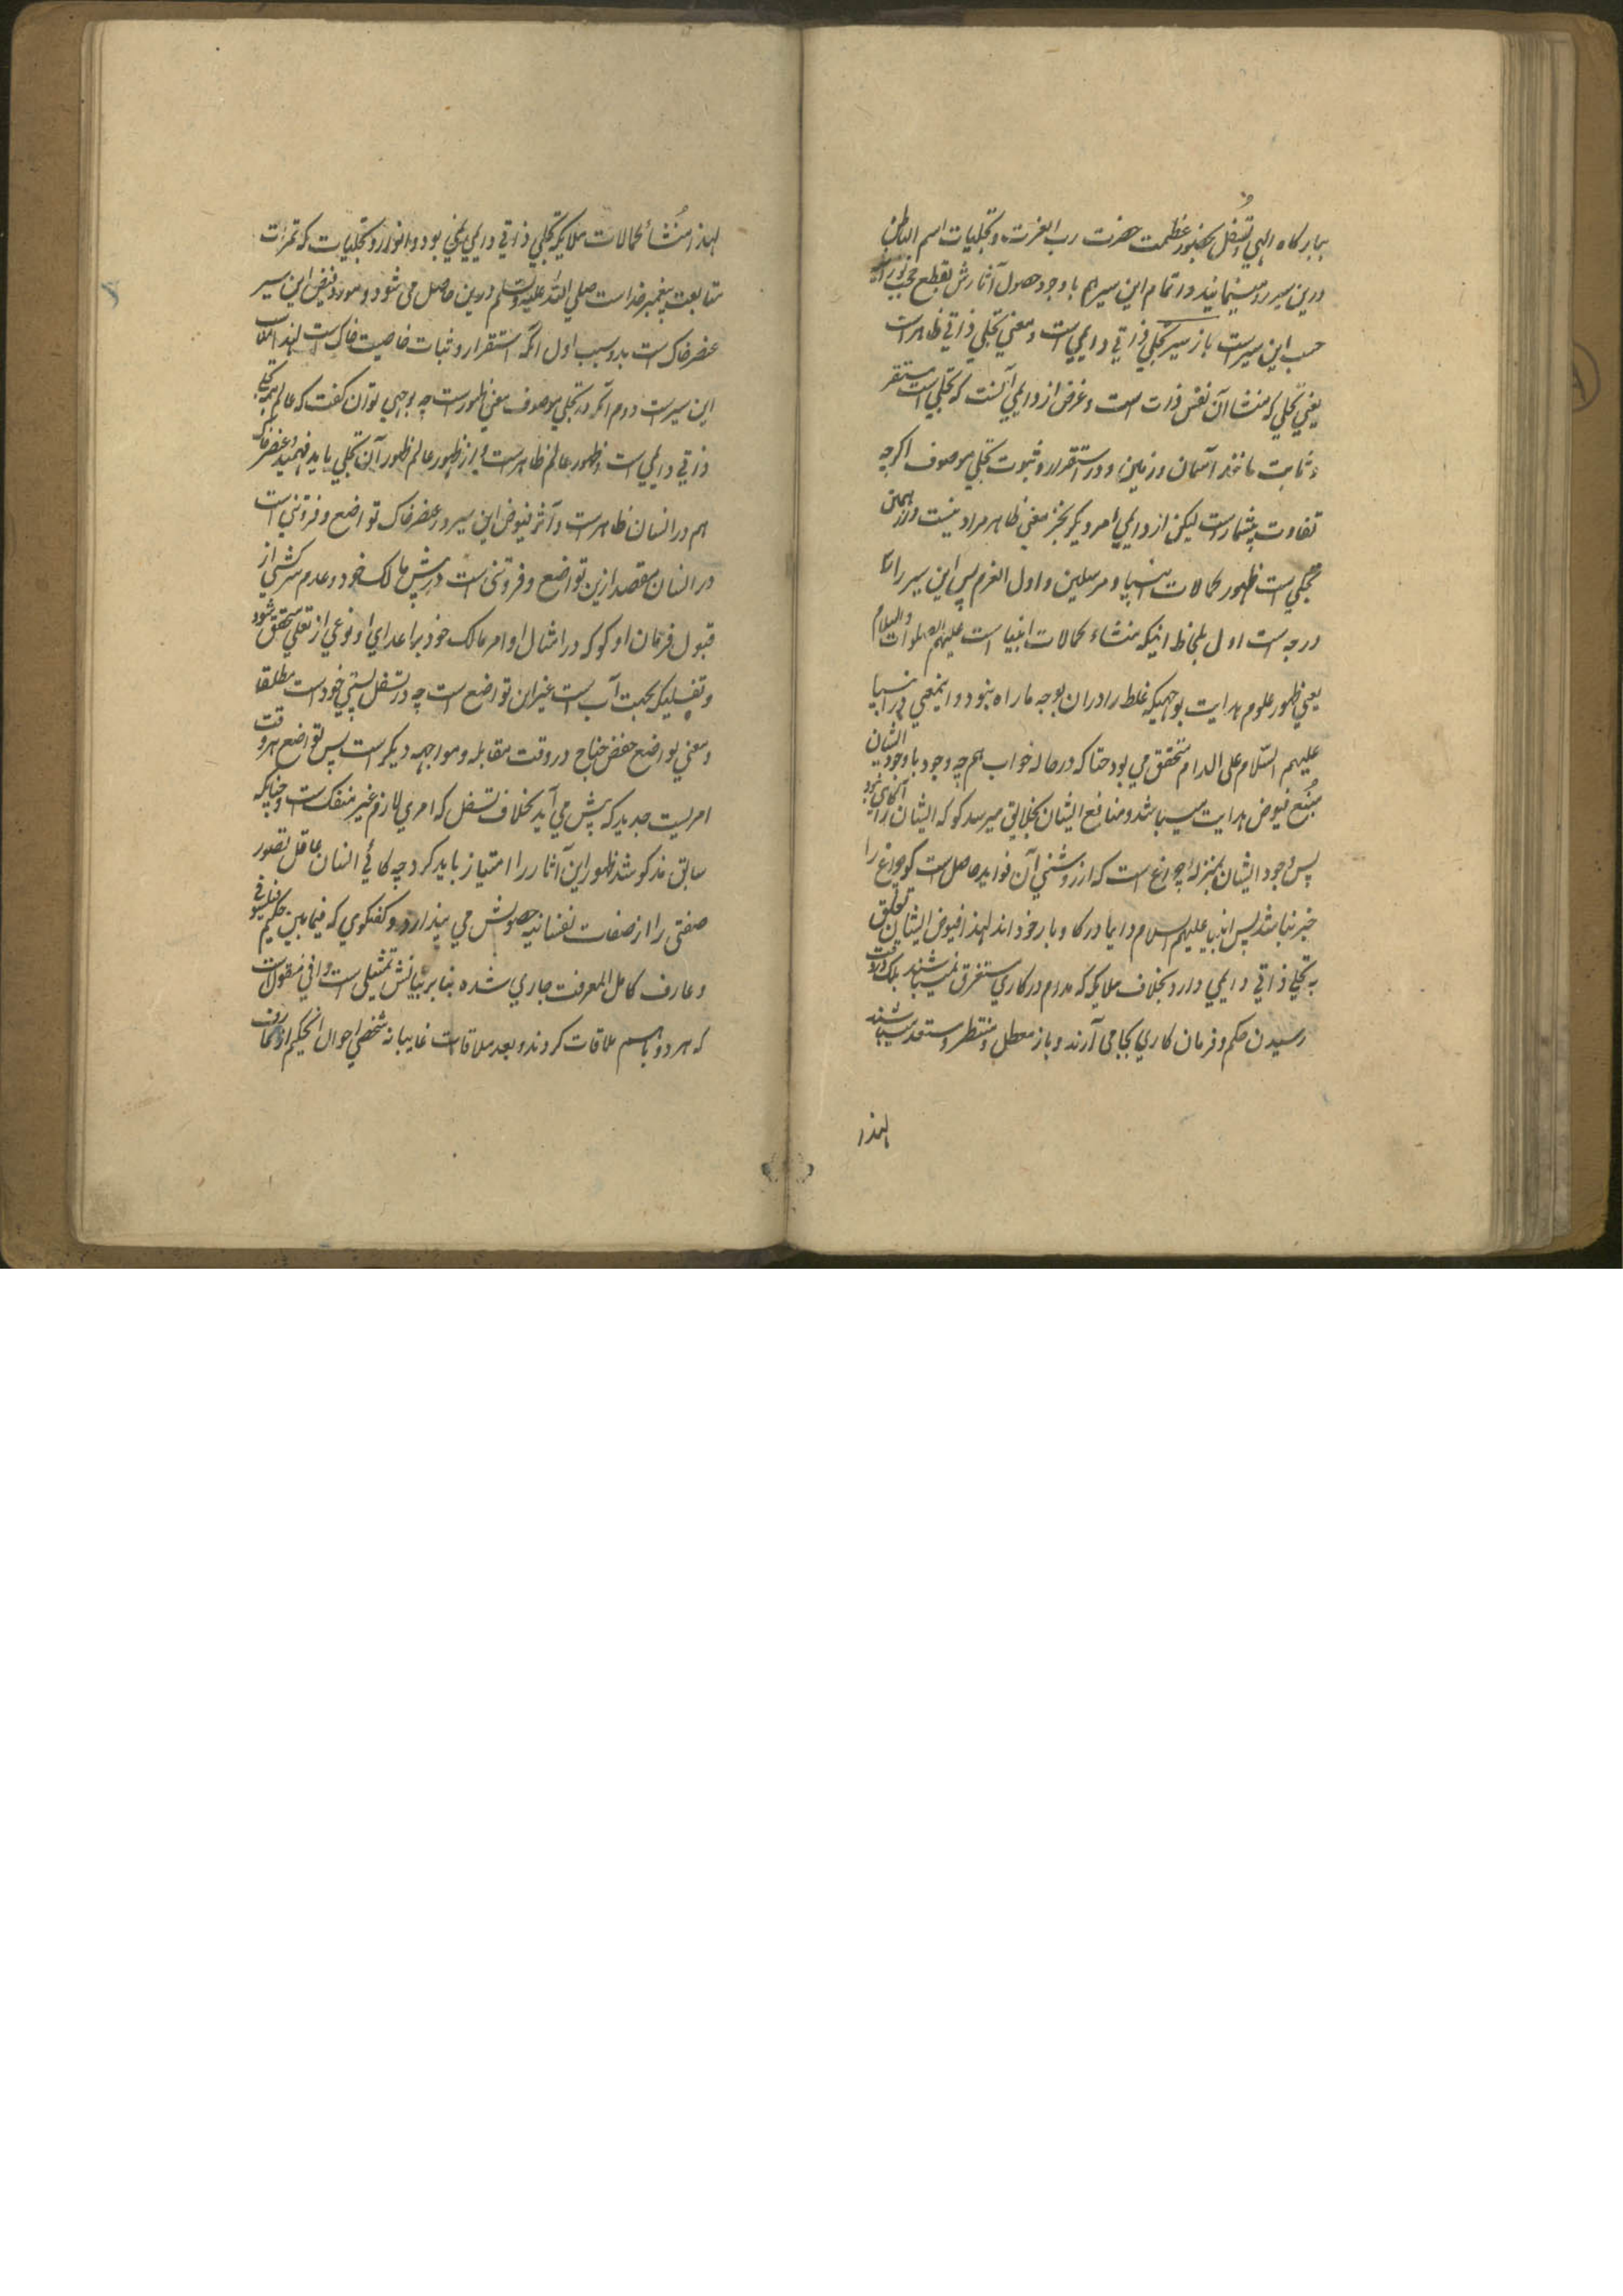 ببارکاه الهي و تسفل بحضور عظمت حضرت رب العزت و تجلیات اسم الباطن
درین سیر رو مینماید و راتمام این سیر هم با وجود حصول آثارش بقطع حجب نورانیه
حسب این سیر است باز سیر تجلي ذاتي دایمي است و معني تجلي ذاتي ظاهر است
یعني تجلي که منشا آن نفس ذات است و غرض از دایمي آنست که تجلي است مستقر
و ثابت مانند آسمان و زمین و در استقرار و ثبوت تجلي موصوف اکرچه
تفاوت بیشمار است لیکن از دایمي امر دیکر بجز معني ظاهر مراد نیست و از همین
تجلي است ظهور کمالات انبیا و مرسلین و اول العزم پس این سیر را سه
درجه است اول بلحاظ اینکه منشاء کمالات انبیا است علیهم الصلوات والسلام
یعني ظهور علوم هدایت بوجهیکه غلط را دران بوجه ما راه نبود و اینمعني در انبیا
علیهم السلام علی الدوام متحقق مي بود حتا که در حاله خواب هم چه وجود با وجود ایشان
منبع فیوض هدایت میباشد و منافع ایشان بخلایق میرسد کو که ایشان را آکاهي نبود
پس وجود ایشان بمنزله چراغ است که از روشني آن فواید حاصل است کو چراغ را
خبر نباشد پس انبیا علیهم السلام دایما در کار و بار خود اند لهذا فیوض ایشان تعلق
به تجلي ذاتي دایمي دارد بخلاف ملایکه که مدام در کاري مستغرق نمیباشند بلکه در وقت
رسیدن حکم و فرمان کاري بجا مي آرند و باز معطل و منتظر و مستعد میباشند
لهذا
لهذا منشأ کمالات ملایکه تجلي ذاتي دایمي نمي بود و انوار و تجلیات که ثمرات
متابعت پیغمبر خداست صلي الله علیه وسلم درین حاصل می شود و مورد فیض این سیر
عنصر خاک است بدو سبب اول آنکه استقرار و ثبات خاصیت خاک است لهذا
این سیر است دوم آنکه در تجلي موصوف معني ظهور است چه بوجهي توان کفت که عالم همه تجلي
ذاتي دایمي است و ظهور عالم ظاهر است و از ظهور عالم ظهور آن تجلي باید فهمید و عنصر خاک
هم در انسان ظاهر است و آثر فیوض این سیر در عنصر خاک تواضع و فروتني است
در انسان مقصد ازین تواضع و فروتنی است در پیش مالک خود و عدم سرکشي از
قبول فرمان او کو که در امتثال اوامر مالک خود بر اعداي او نوعي از تعلي متحقق شود
و تسفلیکه بجهت آب است غیر این تواضع است چه در تسفل پستي خود است مطلقا
و معني تواضع خفض جناح در وقت مقابله و مواجهه دیکر است پس تواضع هر وقت
امریست جدید که پیش مي آید بخلاف تسفل که امري لازم غیر منفک است و چنانکه
سابق مذکور شد ظهور این آثار را امتیاز باید کرد چه کاهي انسان عاقل تصور
صفتی را از صفات نفسانیه حصولش مي پندارد و کفتکوي که فیمابین حکیم
و عارف کامل المعرفت جاري شده بنا بر بیانش تمثیلی است وافي منقول است
که هر دو باهم ملاقات کردند و بعد ملاقات غایبانه شخصي احوال آنحکیم از عارف